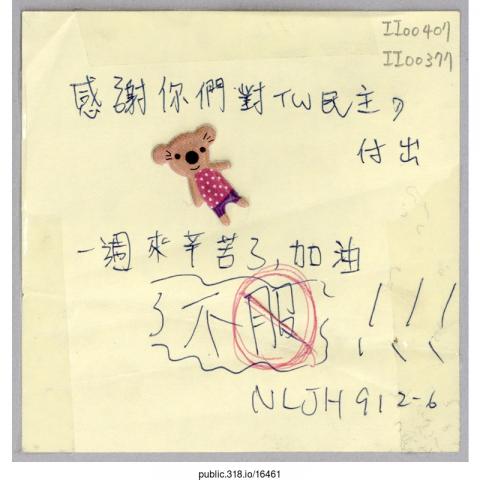 II00407
II00377
感謝你們對TW民主的
付出
一週來辛苦了,加油
不服 !!!
NLJH 912-6
public.318.io/16461